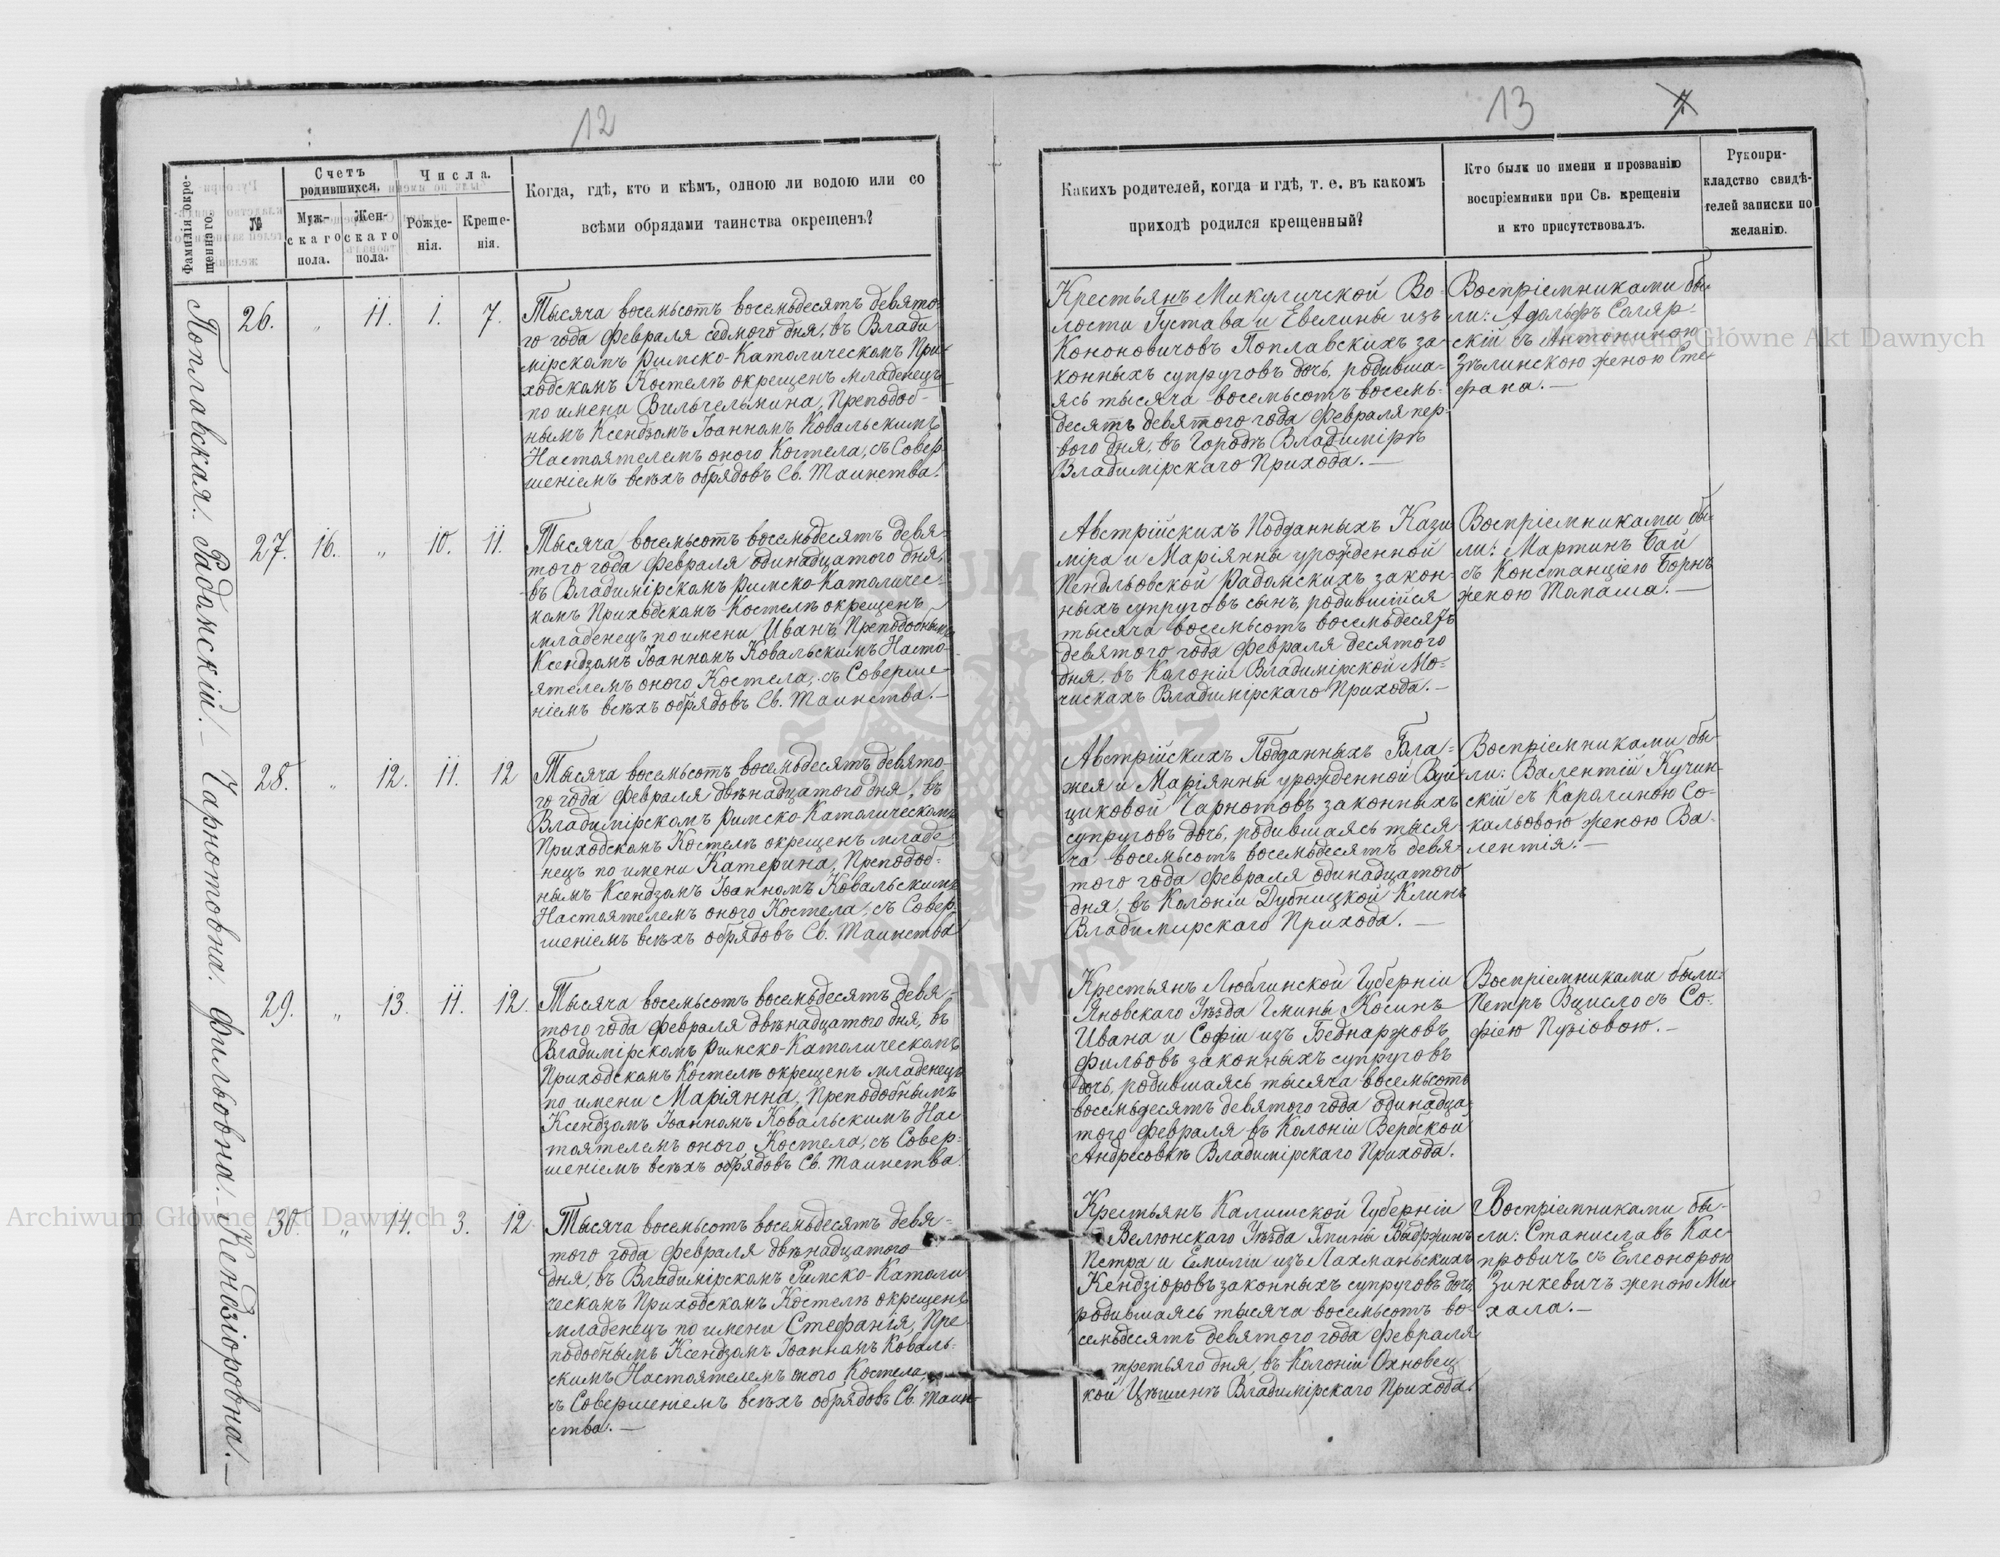 12
Фамилія окре-
щеннаго.
№
Счетъ
родившихся.
Муж-
скаго
пола.
Жен-
скаго
пола.
Числа.
Рожде-
нія.
Креще-
нія.
Когда, гдѣ, кто и кѣмъ, одною ли водою или со
всѣми обрядами таинства окрещенъ?
Поплавская.
26. „ 11. 1. 7.
Тысяча восемьсотъ восемьдесятъ девято-
го года Февраля седмого дня, въ Влади
мірскомъ Римско-Католическомъ При-
ходскомъ Костелѣ окрещенъ младенецъ
по имени Вильгельмина, Преподоб-
нымъ Ксендзомъ Іоанномъ Ковальскимъ
Настоятелемъ оного Костела, съ Совер
шеніемъ всѣхъ обрядовъ Св. Таинства.
Радомскій.
27. 16. „ 10. 11.
Тысяча восемьсотъ восемьдесятъ девя-
того года Февраля одинадцатого дня,
въ Владимірскомъ Римско-Католичес-
комъ Приходскомъ Костелѣ окрещенъ
младенецъ по имени Иванъ, Преподобнымъ
Ксендзомъ Іоанномъ Ковальскимъ Насто-
ятелемъ оного Костела, съ Соверше
ніемъ всѣхъ обрядовъ Св. Таинства.—
Чарнотовна.
28. „ 12. 11. 12
Тысяча восемьсотъ восемьдесятъ девято-
го года Февраля двѣнадцатого дня, въ
Владимірскомъ Римско-Католическомъ
Приходскомъ Костелѣ окрещенъ младе
нецъ по имени Катерина, Преподоб-
нымъ Ксендзомъ Іоанномъ Ковальскимъ
Настоятелемъ оного Костела, съ Совер
шеніемъ всѣхъ обрядовъ Св. Таинства
Фильовна.
29. „ 13. 11. 12.
Тысяча восемьсотъ восемьдесятъ девя-
того года Февраля двѣнадцатого дня, въ
Владимірскомъ Римско-Католическомъ
Приходскомъ Костелѣ окрещенъ младенецъ
по имени Маріянна, Преподобнымъ
Ксендзомъ Іоанномъ Ковальскимъ Нас-
тоятелемъ оного Костела, съ Совер-
шеніемъ всѣхъ обрядовъ Св. Таинства.
Кендзіоровна.—
30. „ 14. 3. 12
Тысяча восемьсотъ восемьдесятъ девя-
того года Февраля двѣнадцатого
дня, въ Владимірскомъ Римско-Католи
ческомъ Приходскомъ Костелѣ окрещенъ
младенецъ по имени Стефанія, Пре
подобнымъ Ксендзомъ Іоанномъ Коваль-
скимъ Настоятелемъ оного Костела,
съ Совершеніемъ всѣхъ обрядовъ Св. Таин-
ства.—
13 7
Какихъ родителей, когда и гдѣ, т. е. въ какомъ
приходѣ родился крещенный?
Кто были по имени и прозванію
воспріемники при Св. крещеніи
и кто присутствовалъ.
Рукопри-
кладство свидѣ-
телей записки по
желанію.
Крестьянъ Микуличской Во-
лости Густава и Евелины изъ
Кононовичовъ Поплавскихъ за-
конныхъ супруговъ дочь, родивша-
ясь тысяча восемьсотъ восемь-
десятъ девятого года Февраля пер-
вого дня, въ Городѣ Владимірѣ
Владимірскаго Прихода.—
Воспріемниками бы-
ли: Адольфъ Соляр-
скій съ Антониною
Зѣлинскою женою Сте-
фана.—
Австрійскихъ Подданныхъ Кази
міра и Маріянны урожденной
Пендльовской Радомскихъ закон-
ныхъ супруговъ сынъ, родившійся
тысяча восемьсотъ восемьдесятъ
девятого года Февраля десятого
дня, въ Колоніи Владимірской Мо-
чискахъ Владимірскаго Прихода.—
Воспріемниками бы-
ли: Мартинъ Бай
съ Констанціею Борнъ
женою Томаша.—
Австрійскихъ Подданныхъ Бла-
жея и Маріянны урожденной Вуй-
циковой Чарнотовъ законныхъ
супруговъ дочь, родившаясь тыся-
ча восемьсотъ восемьдесятъ девя-
того года Февраля одинадцатого
дня, въ Колоніи Дубницкой Клинъ
Владимирскаго Прихода.—
Воспріемниками бы-
ли: Валентій Кучин-
скій съ Каролиною Со-
кальовою женою Ва-
лентія.—
Крестьянъ Люблинской Губерніи
Яновскаго Уѣзда Гмины Косинъ
Ивана и Софіи изъ Беднаржовъ
Фильовъ законныхъ супруговъ
дочь, родившаясь тысяча восемьсотъ
восемьдесятъ девятого года одинадца-
того Февраля въ Колоніи Вербской
Андресовкѣ Владимірскаго Прихода.
Воспріемниками были:
Петръ Вцисло съ Со-
фіею Пузіовою.—
Крестьянъ Калишской Губерніи
Велюнскаго Уѣзда Гмины
Петра и Емиліи изъ Лахманьскихъ
Кендзіоровъ законныхъ супруговъ дочь,
родившаясь тысяча восемьсотъ во-
семьдесятъ девятого года Февраля
третьяго дня, въ Колоніи Охновец
кой Цѣшинѣ Владимірскаго Прихода.
Воспріемниками бы-
ли: Станиславъ Кас-
провичъ съ Елеонорою
Зинкевичъ женою Ми-
хала.—
Archiwum Główne Akt Dawnych
Archiwum Główne Akt Dawnych